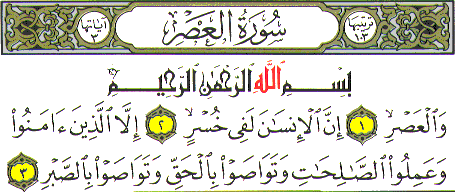 ترتيبها ١٠٣ سُورَةُ العَصْرِ آياتها ٣
بِسْمِ اللَّهِ الرَّحْمَٰنِ الرَّحِيمِ
وَٱلْعَصْرِ ۝١ إِنَّ ٱلْإِنسَـٰنَ لَفِى خُسْرٍ ۝٢ إِلَّا ٱلَّذِينَ ءَامَنُوا۟
وَعَمِلُوا۟ ٱلصَّـٰلِحَـٰتِ وَتَوَاصَوْا۟ بِٱلْحَقِّ وَتَوَاصَوْا۟ بِٱلصَّبْرِ ۝٣